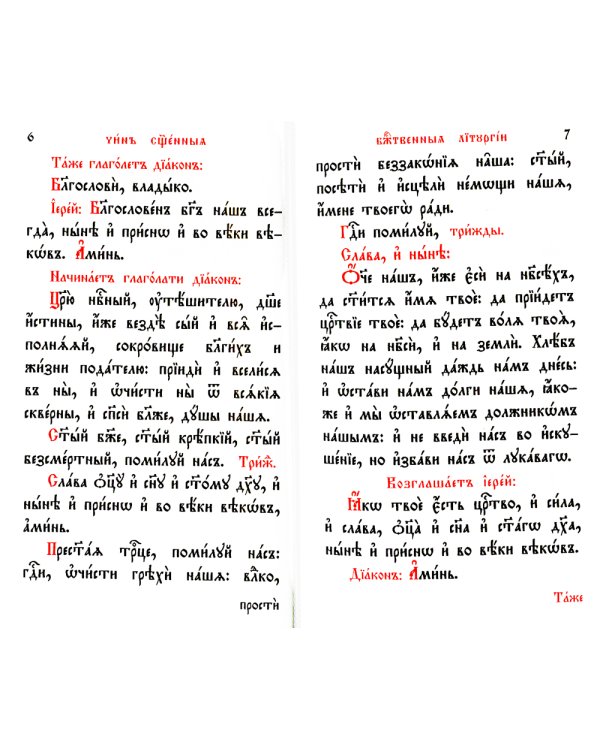 6 чи́нъ сщ҃е́нныѧ
Та́же глаго́летъ дїа́конъ:
Бл҃гословѝ, влады́ко.
І҆ере́й: Бл҃гослове́нъ бг҃ъ на́шъ все-
гда̀, ны́нѣ и҆ при́снѡ и҆ во вѣ́ки вѣ-
кѡ́въ. А҆ми́нь.
Начина́етъ глаго́лати дїа́конъ:
Цр҃ю̀ нбⷭ҇ный, ᲂу҆тѣ́шителю, дш҃е
и҆́стины, и҆́же вездѣ̀ сы́й и҆ всѧ̑ и҆с-
полнѧ́ѧй, сокро́вище бл҃ги́хъ и҆
жи́зни пода́телю: прїидѝ и҆ всели́сѧ
въ ны̀, и҆ ѡ҆чи́сти ны̀ ѿ всѧ́кїѧ
скве́рны, и҆ сп҃сѝ бл҃же, дꙋ́шы на́шѧ.
Ст҃ы́й бж҃е, ст҃ы́й крѣ́пкїй, ст҃ы́й
безсме́ртный, поми́лꙋй на́съ. Три́ж.
Сла́ва ѻ҆ц҃ꙋ̀ и҆ сн҃ꙋ и҆ ст҃о́мꙋ дх҃ꙋ, и҆
ны́нѣ и҆ при́снѡ и҆ во вѣ́ки вѣкѡ́въ,
а҆ми́нь.
Прест҃а́ѧ трⷪ҇це, поми́лꙋй на́съ:
гдⷭ҇и, ѡ҆чи́сти грѣхѝ на́шѧ: влⷣко,
простѝ
бжⷭ҇твенныѧ лїтꙋргі́и 7
простѝ беззакѡ́нїѧ на̑ша: ст҃ы́й,
посѣтѝ и҆ и҆сцѣлѝ не́мѡщи на́шѧ,
и҆́мене твоегѡ̀ ра́ди.
Гдⷭ҇и поми́лꙋй, три́жды.
Сла́ва, и҆ ны́нѣ:
Ѻ҆́ч҃е на́шъ, и҆́же є҆сѝ на нб҃сѣ́хъ,
да ст҃и́тсѧ и҆́мѧ твоѐ: да прїи́детъ
црⷭ҇твїе твоѐ: да бꙋ́детъ во́лѧ твоѧ̀,
ꙗ҆́кѡ на нб҃сѝ, и҆ на землѝ. Хлѣ́бъ
на́шъ насꙋ́щный да́ждь на́мъ дне́сь:
и҆ ѡ҆ста́ви на́мъ до́лги на́шѧ, ꙗ҆́ко-
же и҆ мы̀ ѡ҆ставлѧ́емъ должникѡ́мъ
на́шымъ: и҆ не введѝ на́съ во и҆скꙋ-
ше́нїе, но и҆зба́ви на́съ ѿ лꙋка́вагѡ.
Возглаша́етъ і҆ере́й:
Ꙗ҆́кѡ твоѐ є҆́сть црⷭ҇тво, и҆ си́ла,
и҆ сла́ва, ѻ҆ц҃а̀ и҆ сн҃а и҆ ст҃а́гѡ дх҃а,
ны́нѣ и҆ при́снѡ и҆ во вѣ́ки вѣкѡ́въ.
Дїа́конъ: А҆ми́нь.
Та́же